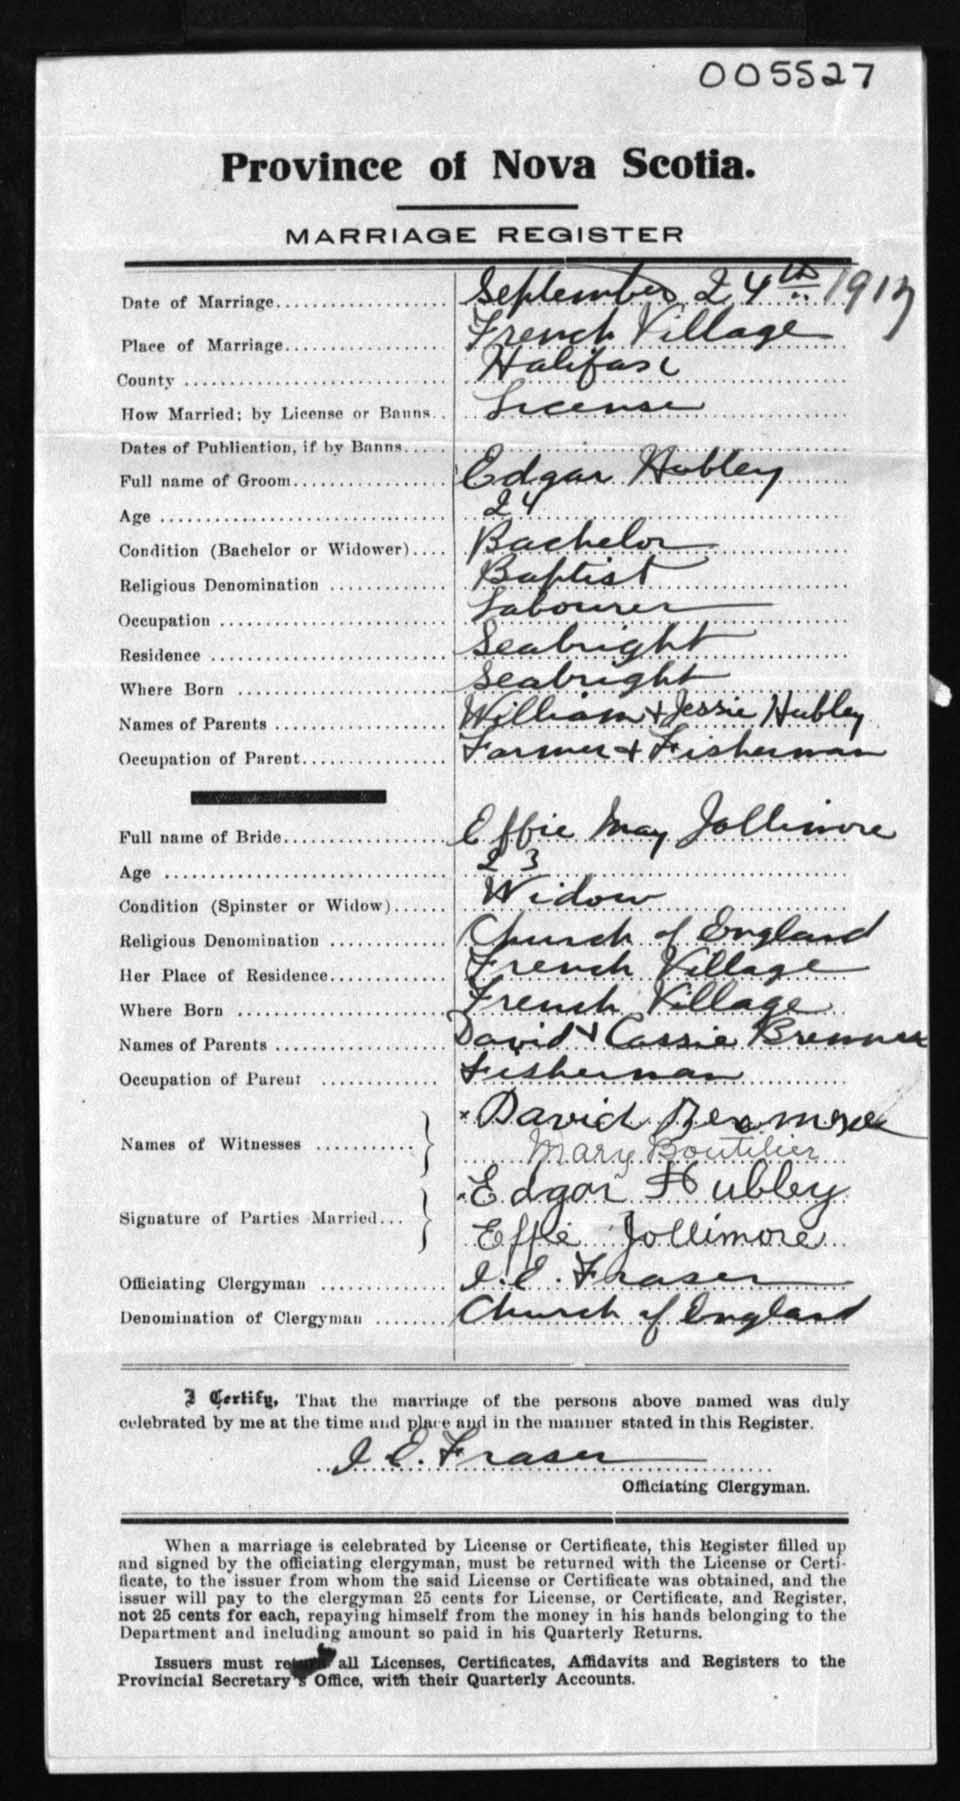 005527
Province of Nova Scotia.
MARRIAGE REGISTER
Date of Marriage September 24th 1917
Place of Marriage French Village
County Halifax
How Married; by License or Banns License
Dates of Publication, if by Banns
Full name of Groom Edgar Hubley
Age 24
Condition (Bachelor or Widower) Bachelor
Religious Denomination Baptist
Occupation Labourer
Residence Seabright
Where Born Seabright
Names of Parents William + Jessie Hubley
Occupation of Parent Farmer + Fisherman
Full name of Bride Effie May Jollimore
Age 23
Condition (Spinster or Widow) Widow
Religious Denomination Church of England
Her Place of Residence French Village
Where Born French Village
Names of Parents David + Cassie
Occupation of Parent Fisherman
Names of Witnesses David
Mary Boutilier
Signature of Parties Married Edgar Hubley
Effie Jollimore
Officiating Clergyman I. E. Fraser
Denomination of Clergyman Church of England
I Certify, That the marriage of the persons above named was duly
celebrated by me at the time and place and in the manner stated in this Register.
I E. Fraser
Officiating Clergyman.
When a marriage is celebrated by License or Certificate, this Register filled up
and signed by the officiating clergyman, must be returned with the License or Certi-
ficate, to the issuer from whom the said License or Certificate was obtained, and the
issuer will pay to the clergyman 25 cents for License, or Certificate, and Register,
not 25 cents for each, repaying himself from the money in his hands belonging to the
Department and including amount so paid in his Quarterly Returns.
Issuers must return all Licenses, Certificates, Affidavits and Registers to the
Provincial Secretary's Office, with their Quarterly Accounts.